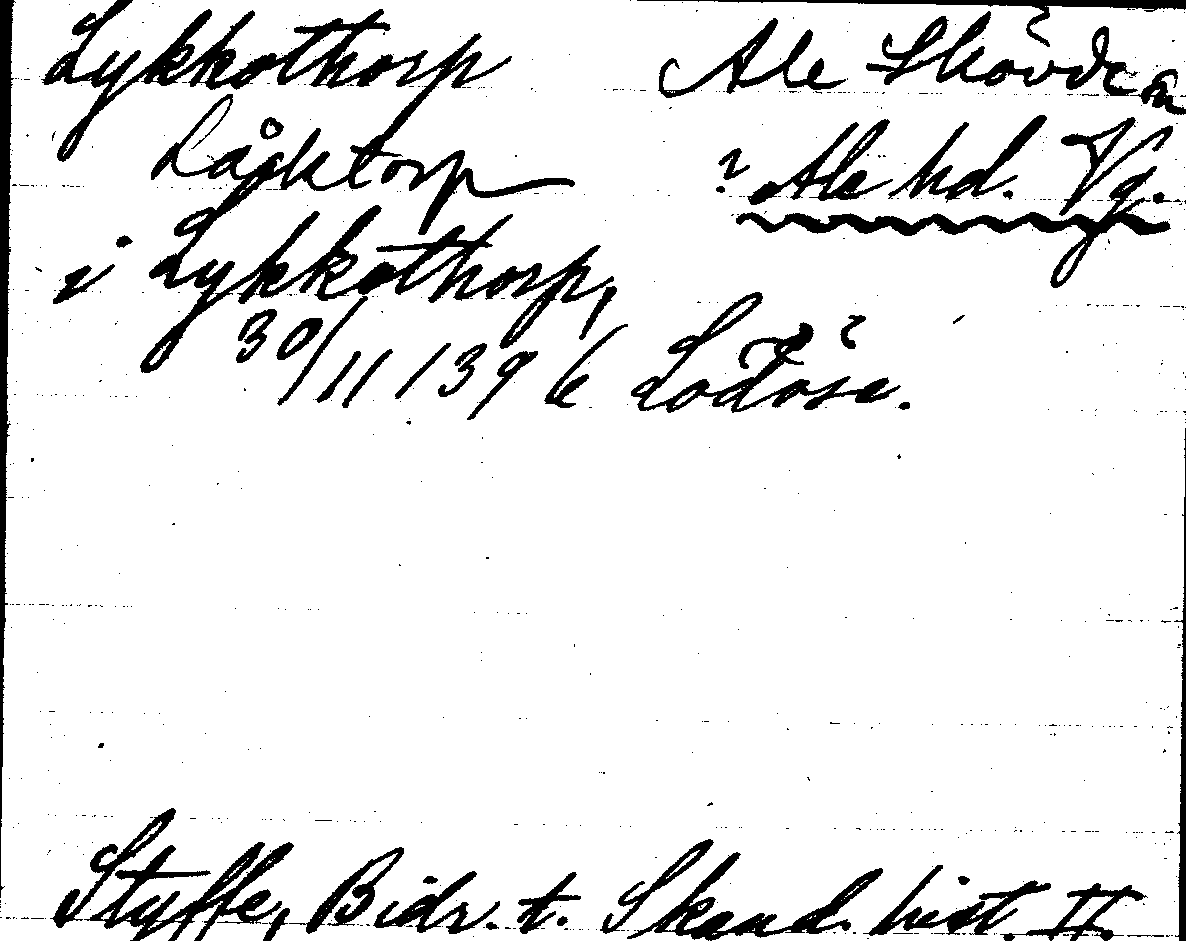 Lykkothorp Ale Skövde sn
Låcktorp ? Ale hd. Vg.
i Lykkothorp,
30/11 1396 Lodose.
Styffe, Bidr. t. Skand. hist. II.